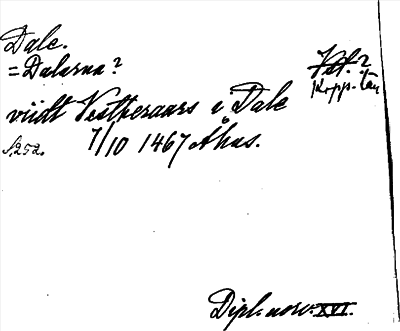 Dale.
= Dalarna?
Vet.?
Kopp.-län
viidt Vestheraars i Dale
s. 252. 7/10 1467 Åhus.
Dipl. norv. XVI.